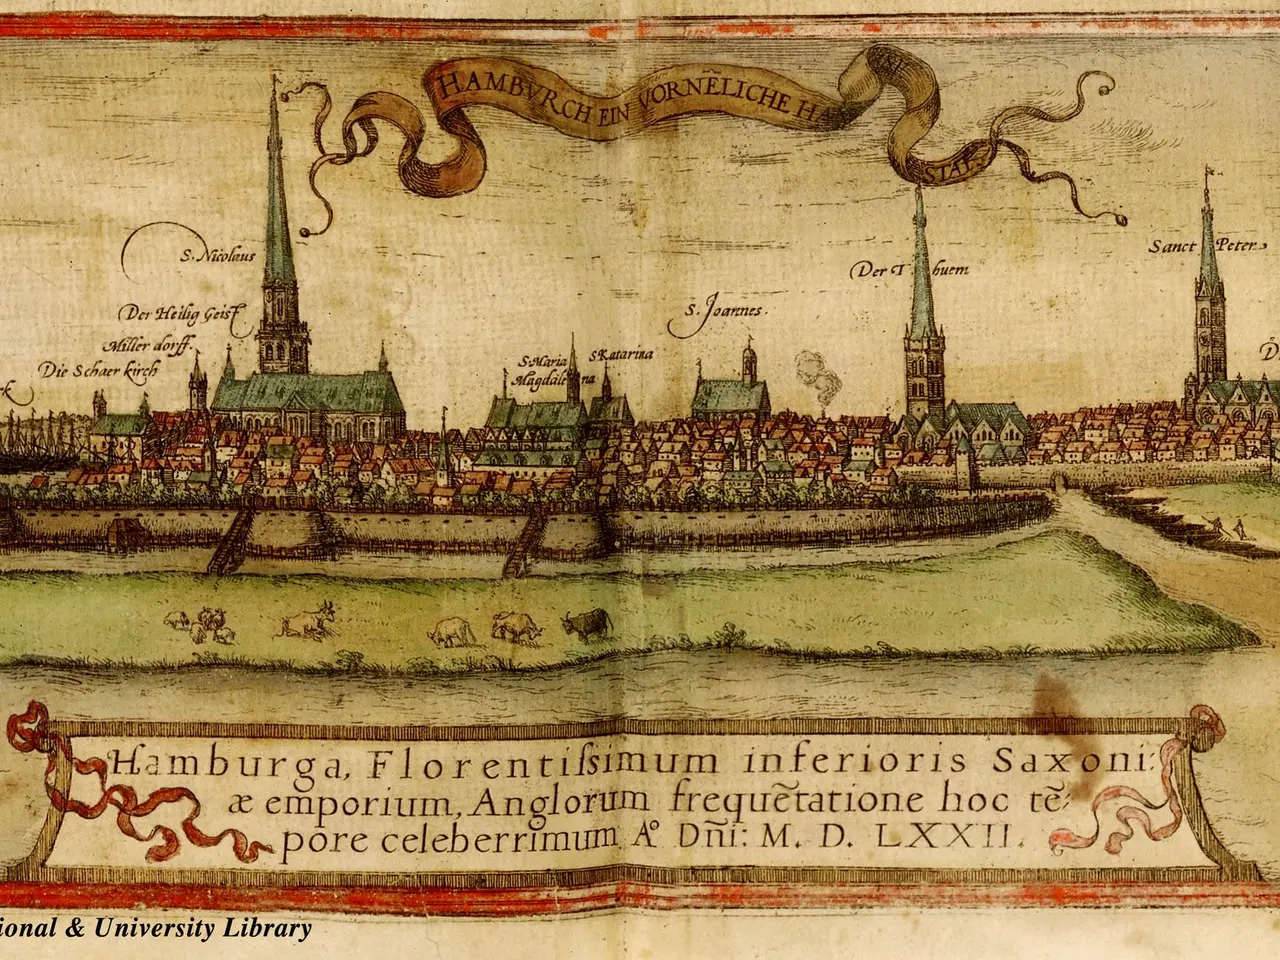 HAMBVRCH EIN VORNẼLICHE HA
STAT.
S. Nicolaus
Der Heilig Geist
Miller dorff.
Die Schaer kirch
S. Maria
Magdalena
S Katarina
S. Joannes.
Der Thuem
Sanct Peter
Hamburga, Florentiſsimum inferioris Saxoni:
æ emporium, Anglorum frequẽtatione hoc tẽ:
pore celeberrimum A° Dñi: M. D. LXXII.
ional & University Library